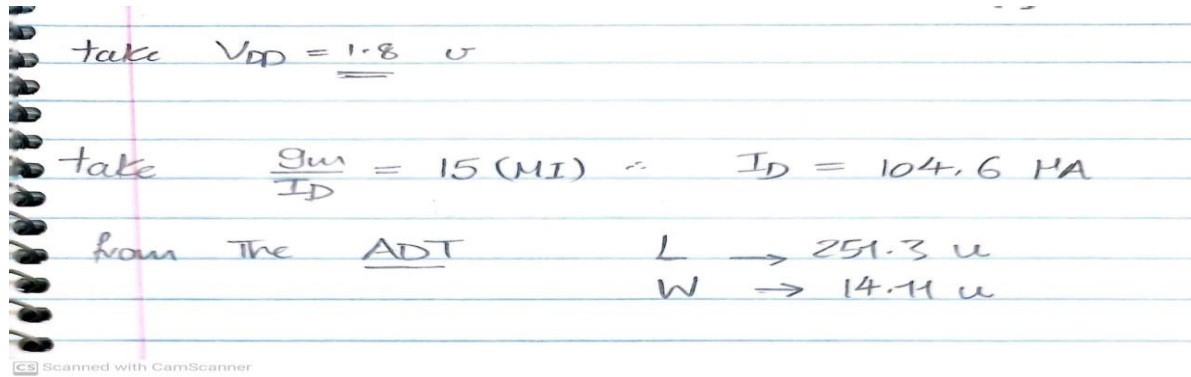 take VDD = 1.8 v
take gm/ID = 15 (MI) ∴ ID = 104.6 μA
from The ADT L → 251.3 u
W → 14.11 u
CS Scanned with CamScanner